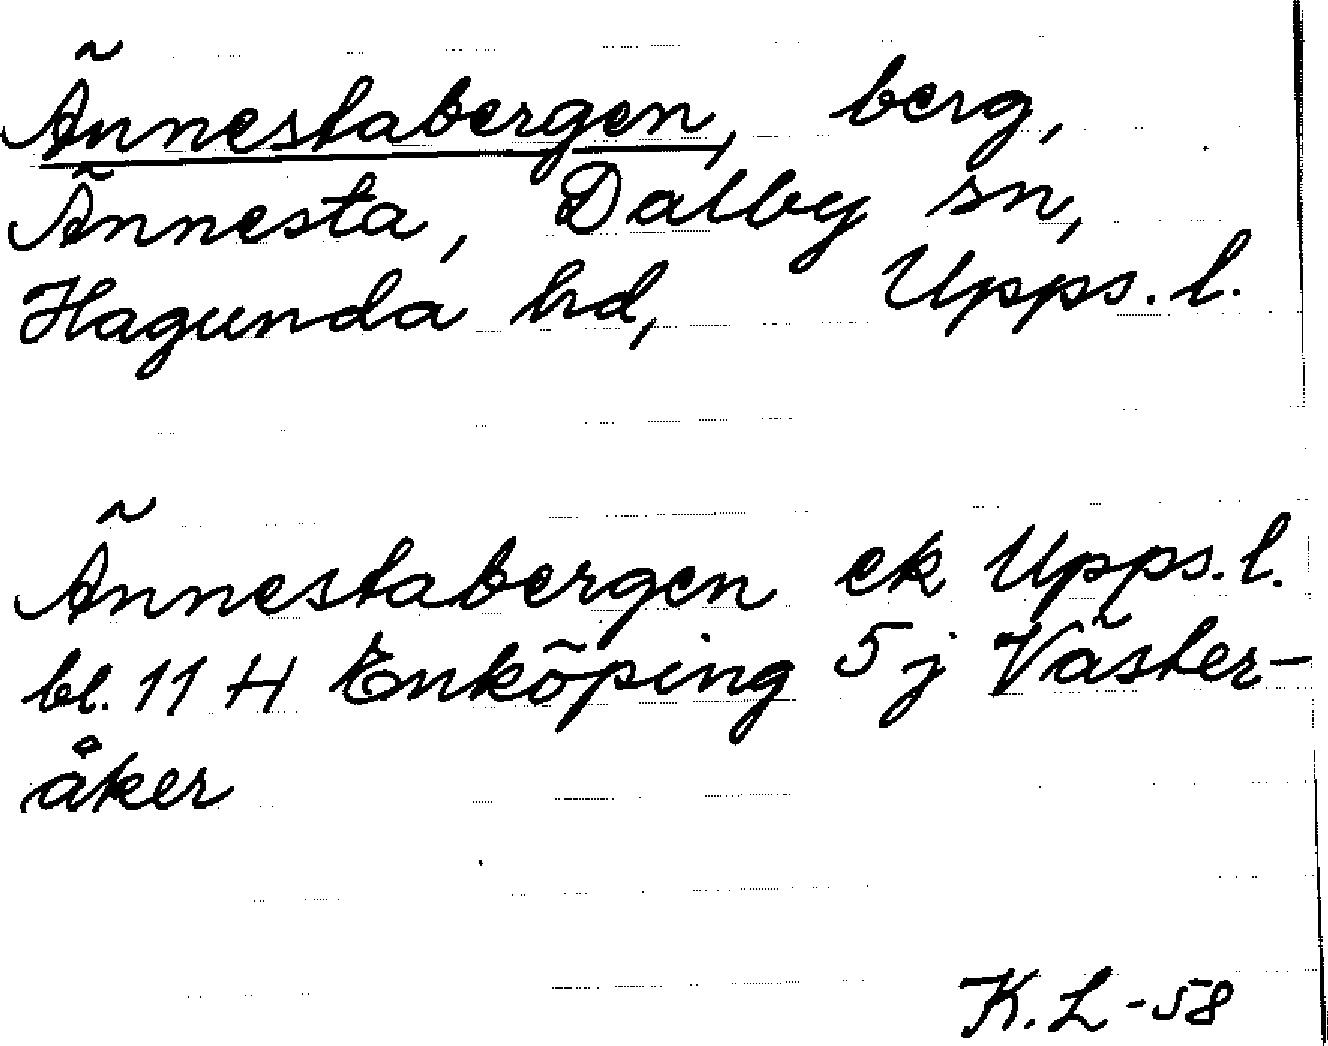 Ännestabergen, berg,
Ännesta, Dalby sn,
Hagunda hd, Upps. l.
Ännestabergen ek Upps. l.
bl. 11 H Enköping 5 j Väster-
åker
K. L -58